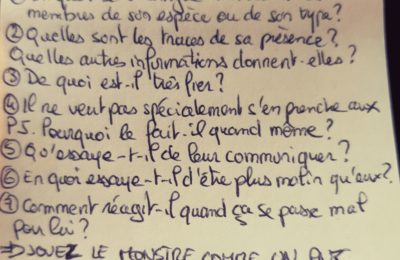 membres de son espèce ou de son type?
② Quelles sont les traces de sa présence?
Quelles autres informations donnent-elles?
③ De quoi est-il très fier?
④ Il ne veut pas spécialement s'en prendre aux
PJ. Pourquoi le fait-il quand même?
⑤ Qu'essaye-t-il de leur communiquer?
⑥ En quoi essaye-t-il d'être plus malin qu'eux?
⑦ Comment réagit-il quand ça se passe mal
pour lui?
⇒ JOUEZ LE MONSTRE COMME UN